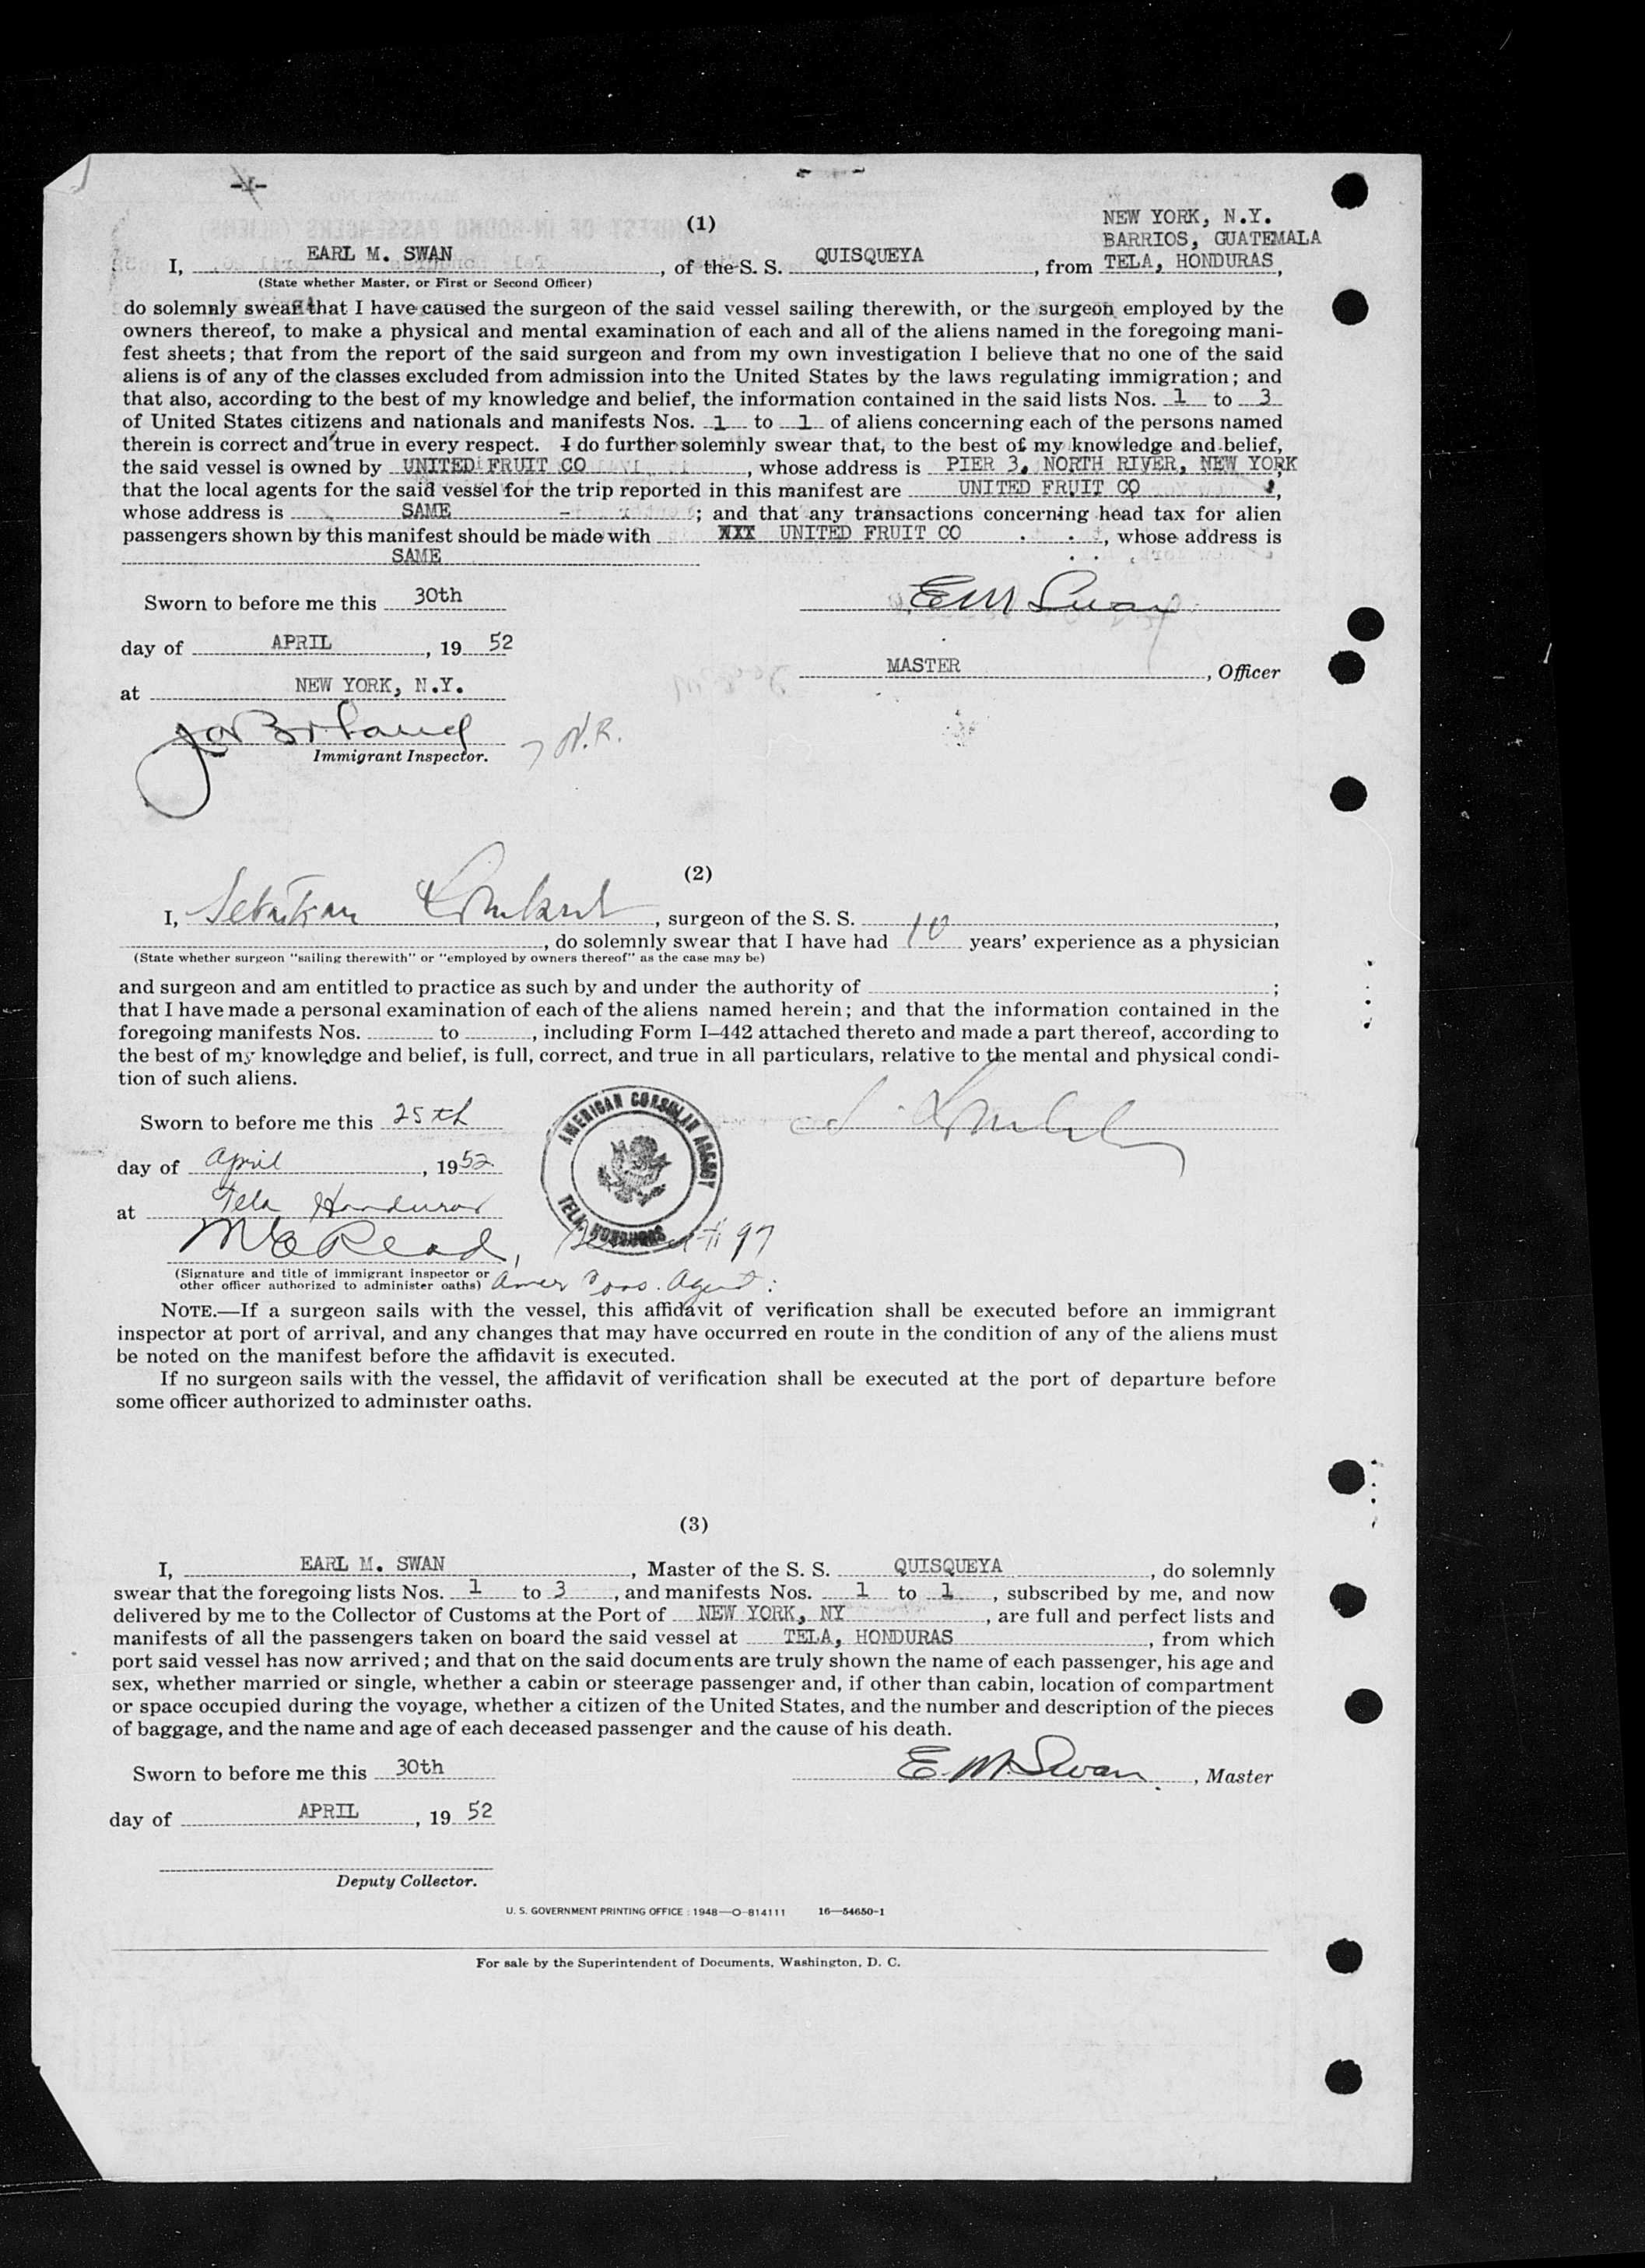 (1)
NEW YORK, N.Y.
BARRIOS, GUATEMALA
I, EARL M. SWAN, of the S. S. QUISQUEYA, from TELA, HONDURAS,
(State whether Master, or First or Second Officer)
do solemnly swear that I have caused the surgeon of the said vessel sailing therewith, or the surgeon employed by the
owners thereof, to make a physical and mental examination of each and all of the aliens named in the foregoing mani-
fest sheets; that from the report of the said surgeon and from my own investigation I believe that no one of the said
aliens is of any of the classes excluded from admission into the United States by the laws regulating immigration; and
that also, according to the best of my knowledge and belief, the information contained in the said lists Nos. 1 to 3
of United States citizens and nationals and manifests Nos. 1 to 1 of aliens concerning each of the persons named
therein is correct and true in every respect. I do further solemnly swear that, to the best of my knowledge and belief,
the said vessel is owned by UNITED FRUIT CO, whose address is PIER 3, NORTH RIVER, NEW YORK;
that the local agents for the said vessel for the trip reported in this manifest are UNITED FRUIT CO,
whose address is SAME; and that any transactions concerning head tax for alien
passengers shown by this manifest should be made with XXX UNITED FRUIT CO, whose address is
SAME
Sworn to before me this 30th
E M Swan
day of APRIL, 19 52
MASTER, Officer
at NEW YORK, N.Y.
N.R.
Immigrant Inspector.
(2)
I, Sebastian, surgeon of the S. S.,
, do solemnly swear that I have had 10 years' experience as a physician
(State whether surgeon "sailing therewith" or "employed by owners thereof" as the case may be)
and surgeon and am entitled to practice as such by and under the authority of ;
that I have made a personal examination of each of the aliens named herein; and that the information contained in the
foregoing manifests Nos. to , including Form I-442 attached thereto and made a part thereof, according to
the best of my knowledge and belief, is full, correct, and true in all particulars, relative to the mental and physical condi-
tion of such aliens.
AMERICAN CONSULAR AGENCY
TELA, HONDURAS
Sworn to before me this 25th
day of April, 1952
at Tela Honduras
Read, # 97
(Signature and title of immigrant inspector or
other officer authorized to administer oaths) Amer Cons. Agent:
NOTE.—If a surgeon sails with the vessel, this affidavit of verification shall be executed before an immigrant
inspector at port of arrival, and any changes that may have occurred en route in the condition of any of the aliens must
be noted on the manifest before the affidavit is executed.
If no surgeon sails with the vessel, the affidavit of verification shall be executed at the port of departure before
some officer authorized to administer oaths.
(3)
I, EARL M. SWAN, Master of the S. S. QUISQUEYA, do solemnly
swear that the foregoing lists Nos. 1 to 3, and manifests Nos. 1 to 1, subscribed by me, and now
delivered by me to the Collector of Customs at the Port of NEW YORK, NY, are full and perfect lists and
manifests of all the passengers taken on board the said vessel at TELA, HONDURAS, from which
port said vessel has now arrived; and that on the said documents are truly shown the name of each passenger, his age and
sex, whether married or single, whether a cabin or steerage passenger and, if other than cabin, location of compartment
or space occupied during the voyage, whether a citizen of the United States, and the number and description of the pieces
of baggage, and the name and age of each deceased passenger and the cause of his death.
Sworn to before me this 30th
E. M. Swan, Master
day of APRIL, 19 52
Deputy Collector.
U. S. GOVERNMENT PRINTING OFFICE : 1948—O-814111 16—54650-1
For sale by the Superintendent of Documents, Washington, D. C.